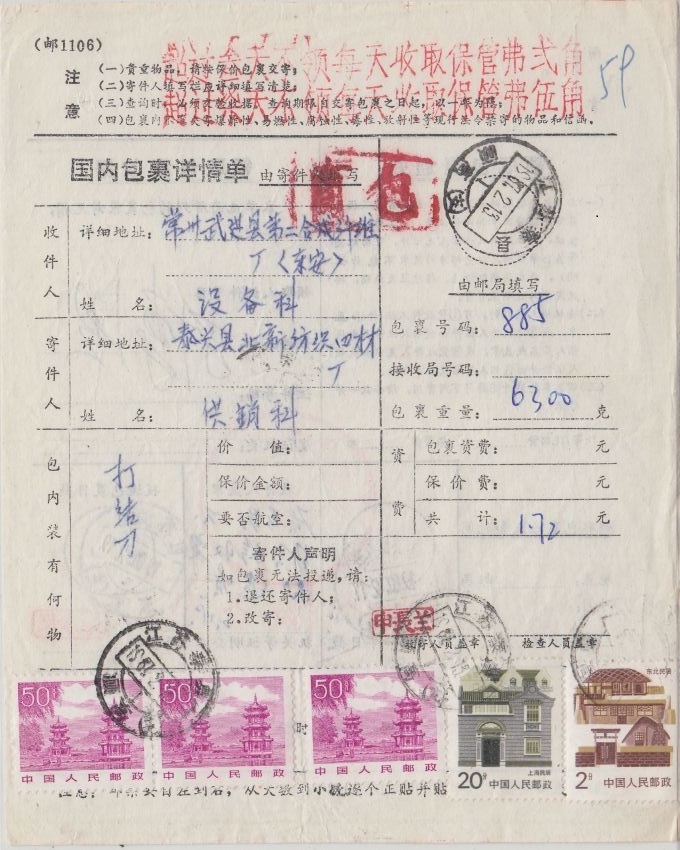 (邮1106)
注意
(一)贵重物品，请按保价包裹交寄；
(二)寄件人填写 应详细填写清楚；
(三)查询时 凭收据 查询期限自交寄包裹之日起，以一年为限；
(四)包裹内 爆炸性、易燃性、腐蚀性、毒性、放射性等现行法令禁寄的物品和信函。
领每天收取保管弗式角
每天收取保管弗伍角
59
国内包裹详情单 由寄件人填写
包
江苏泰兴
收件人
详细地址：常州武进县第二合成纤维
厂〈东安〉
姓名：设备科
寄件人
详细地址：泰兴县北新纺织四材
厂
姓名：供销科
由邮局填写
包裹号码：885
接收局号码：
包裹重量：6300 克
包内装有何物
打结刀
价值：
保价金额：
要否航空：
资费
包裹资费： 元
保价费： 元
共计：1.72 元
寄件人声明
如包裹无法投递，请：
1.退还寄件人；
2.改寄：
接寄人员盖章 检查人员盖章
江苏泰兴
50分 中国人民邮政
50分 中国人民邮政
50分 中国人民邮政
20分 上海民居 中国人民邮政
2分 东北民居 中国人民邮政
时
从大数到小
逐个正贴并贴